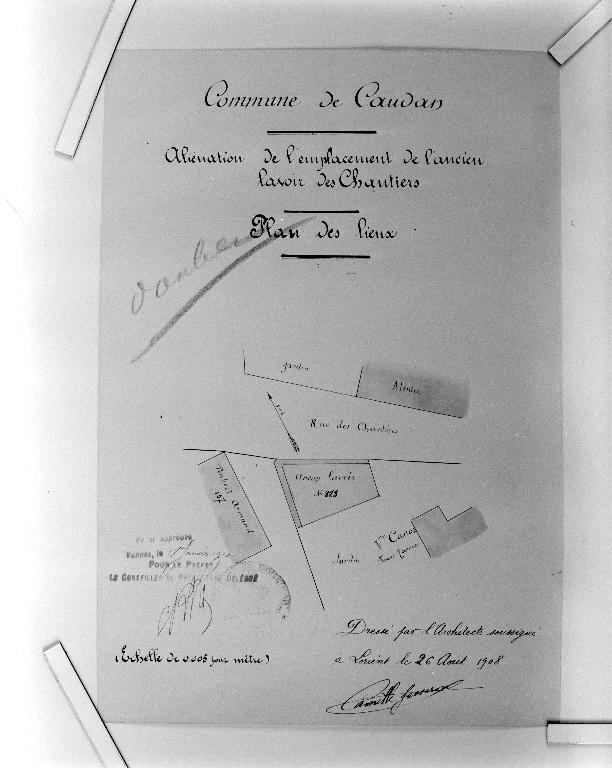 Commune de Caudan
Aliénation de l'emplacement de l'ancien
lavoir des Chantiers
Plan des lieux
double
Jardin
Rue des Chantiers
Ancien lavoir
Jardin
Vu et Approuvé
Vannes, le
POUR LE PRÉFET
LE CONSEILLER DE PRÉFECTURE DÉLÉGUÉ
(Echelle de 0.005 pour mètre)
Dressé par l'Architecte soussigné
à Lorient le 26 Août 1908